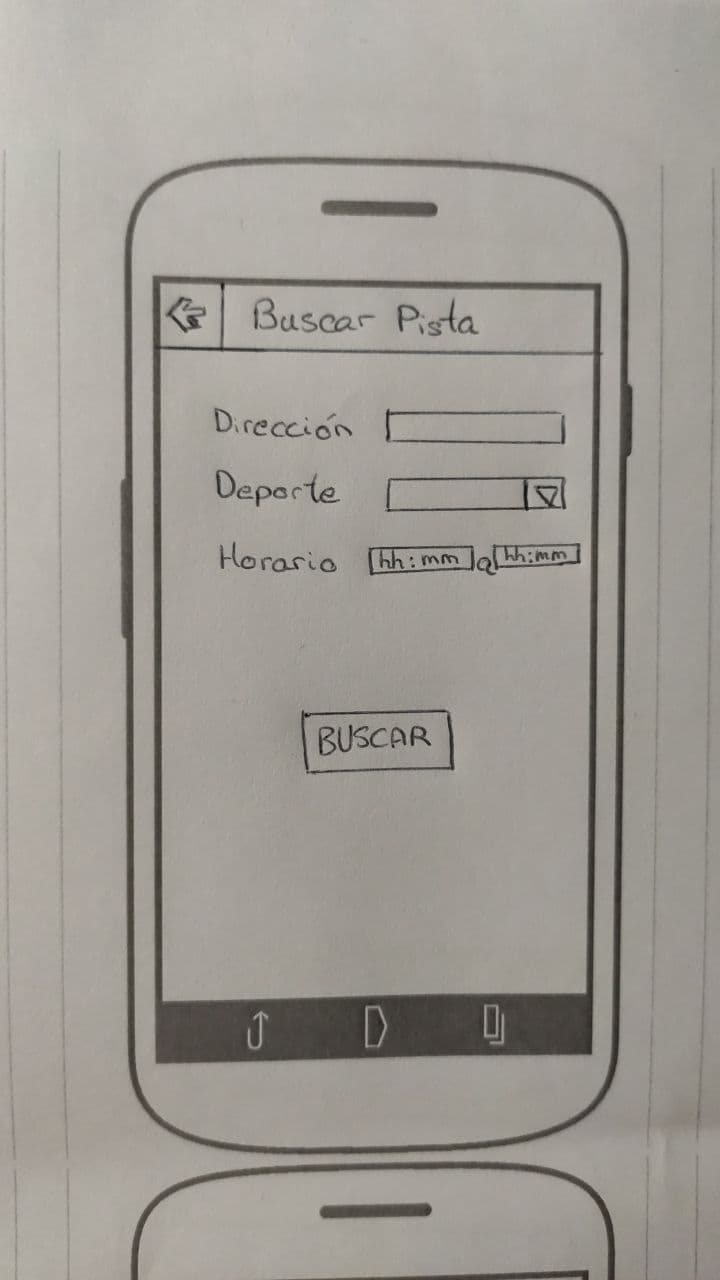 Buscar Pista
Dirección
Deporte
Horario hh:mm a hh:mm
BUSCAR